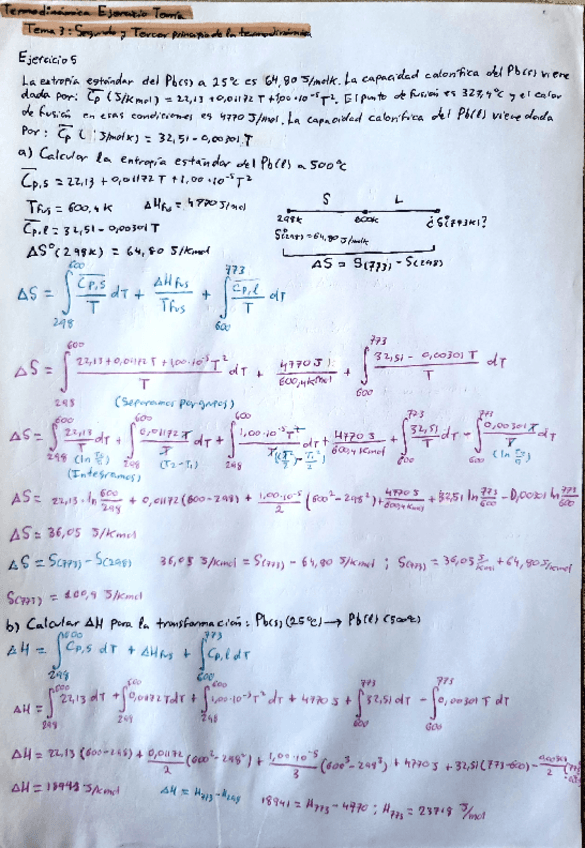 Termodinámica Ejercicio Teoría
Tema 3: Segundo y Tercer principio de la termodinámica
Ejercicio 5
La entropía estándar del Pb(s) a 25ºC es 64,80 J/molK. La capacidad calorífica del Pb(s) viene
dada por: Cp (J/Kmol) = 22,13 + 0,01172 T + 1,00·10⁻⁵T². El punto de fusión es 327,4ºC y el calor
de fusión en esas condiciones es 4770 J/mol. La capacidad calorífica del Pb(l) viene dada
por: Cp (J/molK) = 32,51 - 0,00301 T
a) Calcular la entropía estándar del Pb(l) a 500ºC
Cp,s = 22,13 + 0,01172 T + 1,00·10⁻⁵ T²
Tfus = 600,4 K ΔHfus = 4770 J/mol
S L
298K 600K ¿S(773K)?
Cp,l = 32,51 - 0,00301 T
S(298) = 64,80 J/molK
ΔS°(298K) = 64,80 J/Kmol
ΔS = S(773) - S(298)
ΔS = ∫₂₉₈⁶⁰⁰ Cp,s/T dT + ΔHfus/Tfus + ∫₆₀₀⁷⁷³ Cp,l/T dT
ΔS = ∫₂₉₈⁶⁰⁰ (22,13 + 0,01172 T + 1,00·10⁻⁵ T²)/T dT + 4770 J/600,4 Kmol + ∫₆₀₀⁷⁷³ (32,51 - 0,00301 T)/T dT
(Separamos por grados)
ΔS = ∫₂₉₈⁶⁰⁰ 22,13/T dT + ∫₂₉₈⁶⁰⁰ 0,01172 T/T dT + ∫₂₉₈⁶⁰⁰ 1,00·10⁻⁵ T²/T dT + 4770 J/600,4 Kmol + ∫₆₀₀⁷²³ 32,51/T dT - ∫₆₀₀⁷⁷³ 0,00301 T/T dT
(ln T₂/T₁) (T₂-T₁) (T₂²/2 - T₁²/2) (ln T₂/T₁)
(Integramos)
ΔS = 22,13·ln 600/298 + 0,01172 (600-298) + 1,00·10⁻⁵/2 (600² - 298²) + 4770 J/600,4 Kmol + 32,51 ln 773/600 - 0,00301 ln 773/600
ΔS = 36,05 J/Kmol
ΔS = S(773) - S(298) 36,05 J/Kmol = S(773) - 64,80 J/Kmol ; S(773) = 36,05 J/Kmol + 64,80 J/Kmol
S(773) = 100,9 J/Kmol
b) Calcular ΔH para la transformación: Pb(s) (25ºC) → Pb(l) (500ºC)
ΔH = ∫₂₉₈⁶⁰⁰ Cp,s dT + ΔHfus + ∫₆₀₀⁷⁷³ Cp,l dT
ΔH = ∫₂₉₈⁶⁰⁰ 22,13 dT + ∫₂₉₈⁶⁰⁰ 0,01172 T dT + ∫₂₉₈⁶⁰⁰ 1,00·10⁻⁵ T² dT + 4770 J + ∫₆₀₀⁷⁷³ 32,51 dT - ∫₆₀₀⁷⁷³ 0,00301 T dT
ΔH = 22,13 (600-298) + 0,01172/2 (600² - 298²) + 1,00·10⁻⁵/3 (600³ - 298³) + 4770 J + 32,51 (773-600) - 0,00301/2
ΔH = 18941 J/Kmol ΔH = H₇₇₃ - H₂₉₈ 18941 = H₇₇₃ - 4770 ; H₇₇₃ = 23718 J/mol